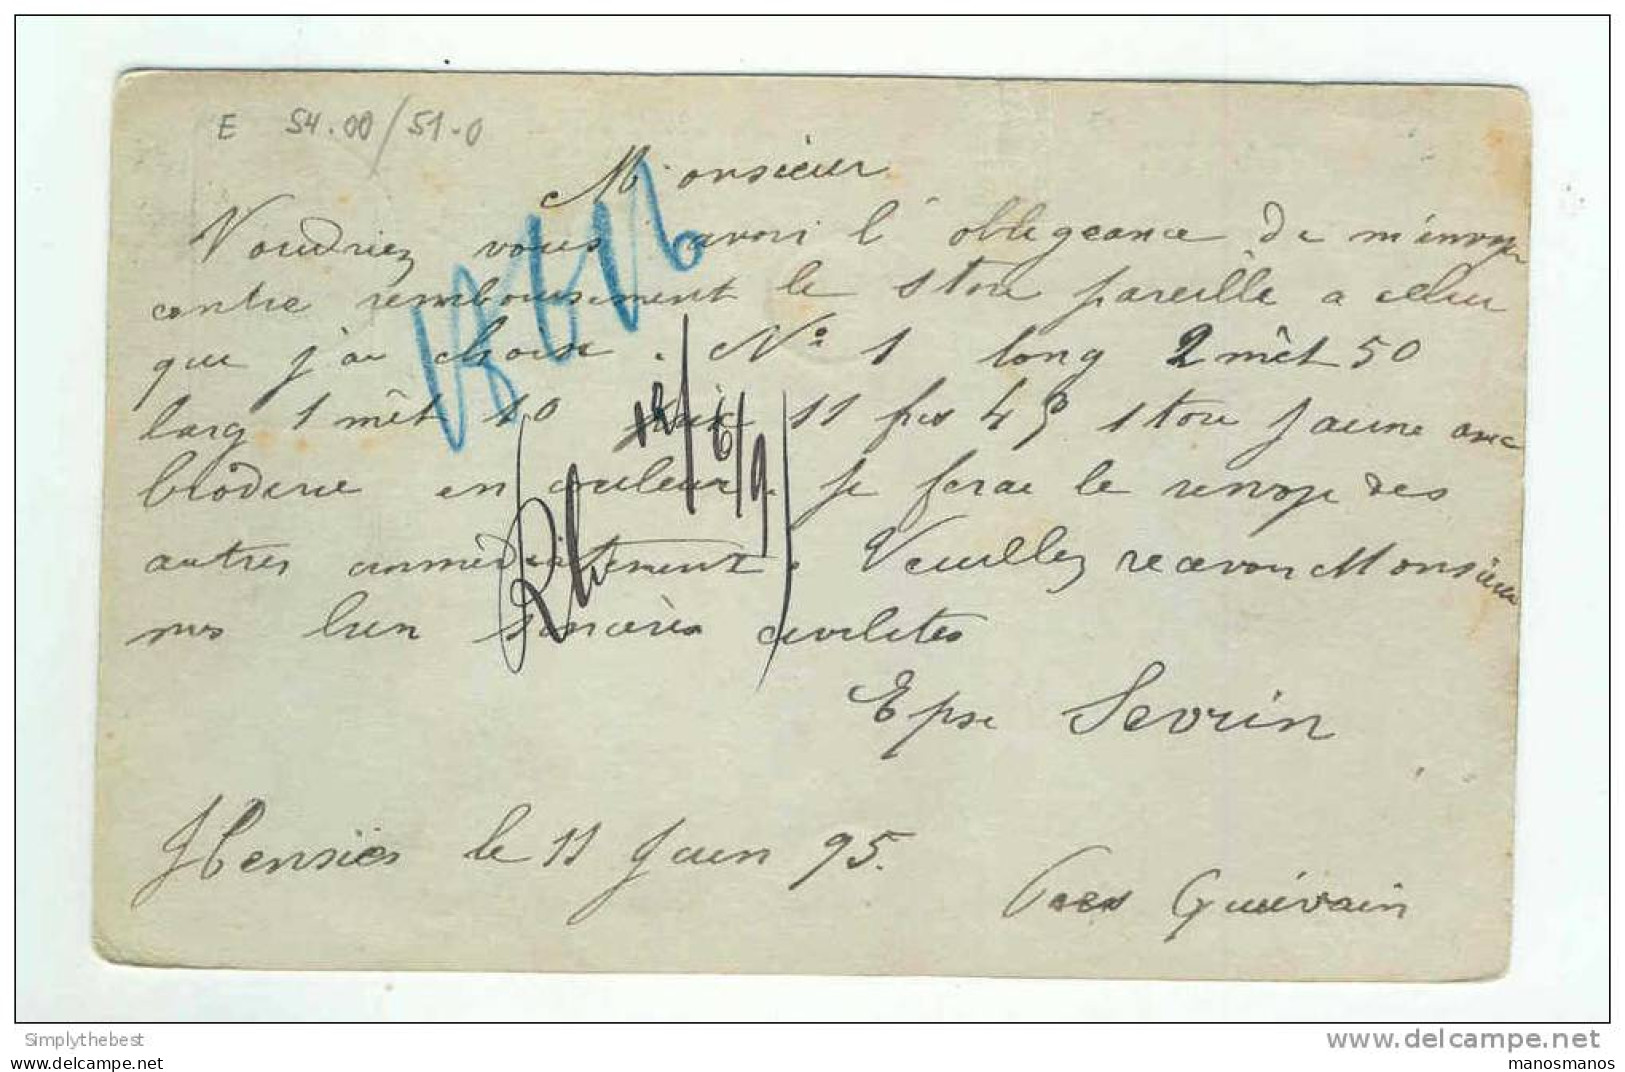 E 54.00/51.0
Monsieur
Voudriez vous avoir l'obligeance de m'envoyer
contre remboursement le store pareille a celui
que j'ai choix. N° 1 long 2 mèt 50
larg 1 mèt 10 prix 11 frs 45 store jaune avec
bròderie en couleur. je ferai le renvoje des
autres immèdiatement. Veuillez recevoir Monsieur
mes bien sincères civilites
Epse Sevrin
Hensies le 11 Juin 95.
Quiévrain
12/6/9
Simplythebest
manosmanos
www.delcampe.net
manosmanos